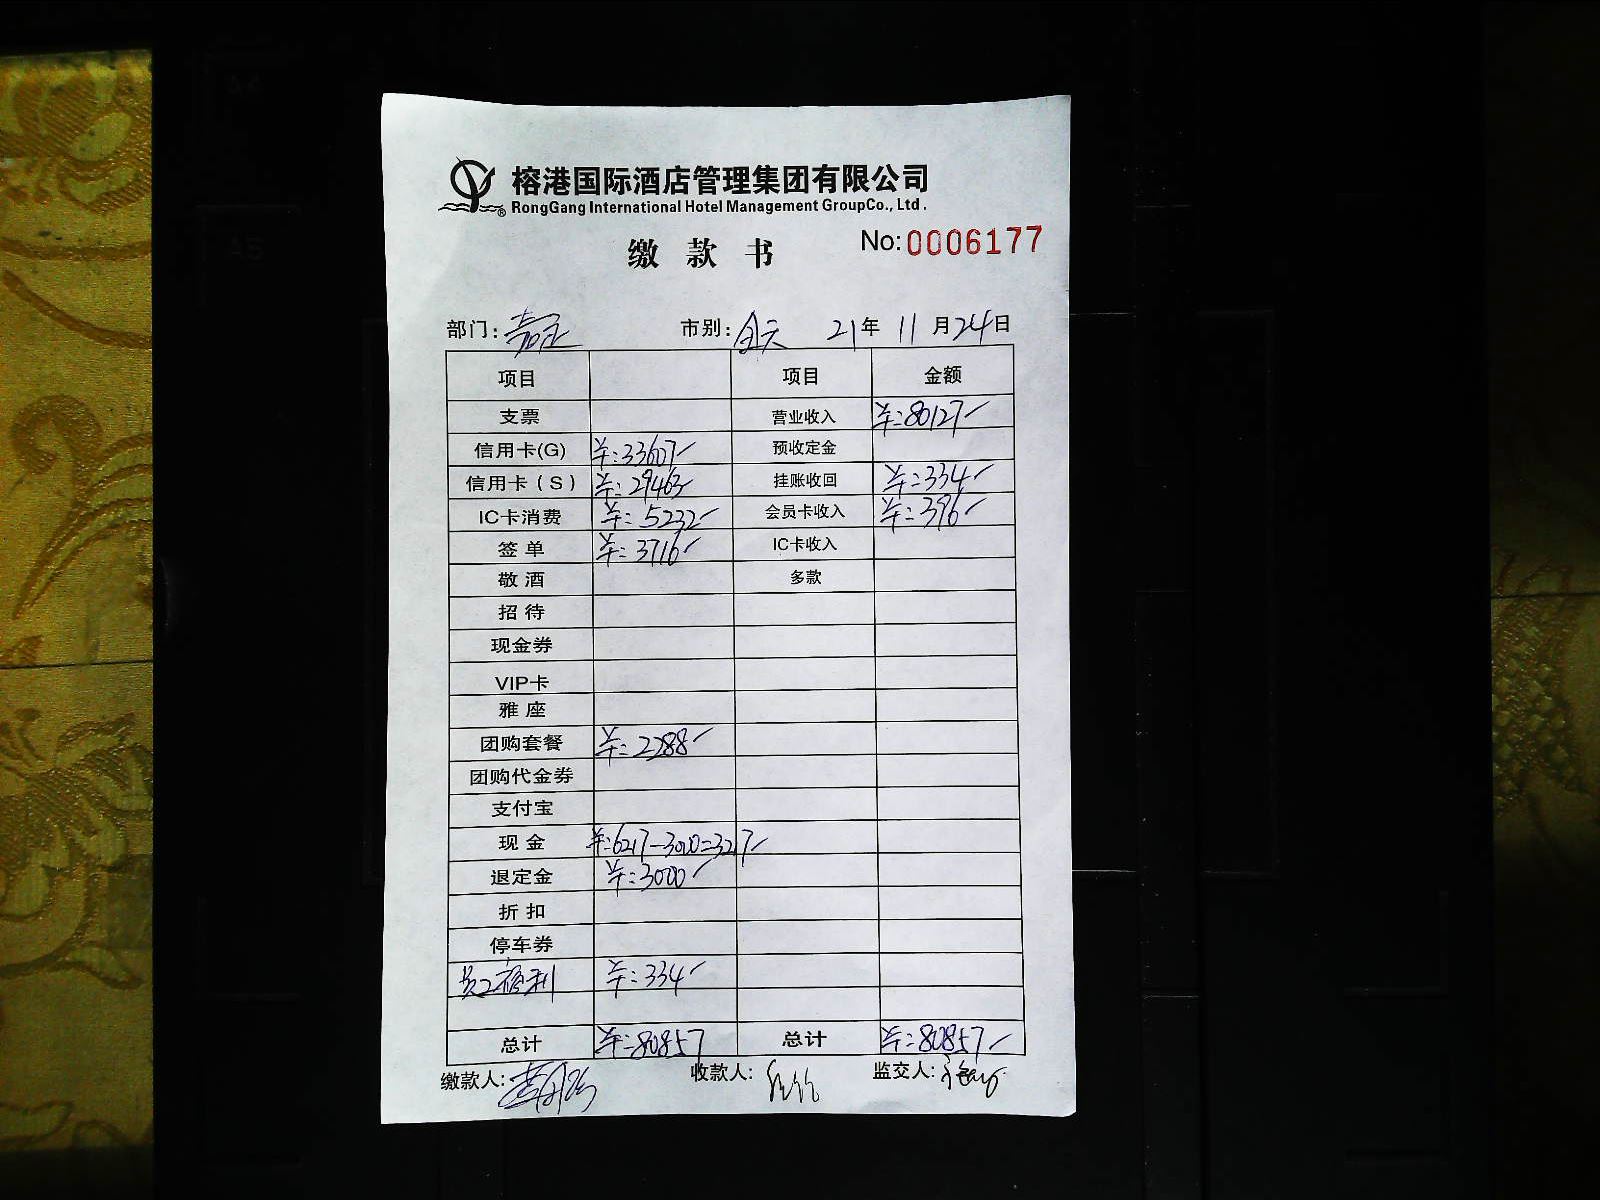 榕港国际酒店管理集团有限公司
RongGang International Hotel Management GroupCo., Ltd .
缴 款 书 No:0006177
部门: 市别:全天 21年 11月24日
项目 项目 金额
支票 营业收入 ¥:80127
信用卡(G) ¥:33607 预收定金
信用卡(S) ¥:29463 挂账收回 ¥:334
IC卡消费 ¥:5232 会员卡收入 ¥:396
签 单 ¥:3716 IC卡收入
敬 酒 多款
招 待
现金券
VIP卡
雅 座
团购套餐 ¥:2288
团购代金券
支付宝
现 金 ¥:6217-3000=3217
退定金 ¥:3000
折 扣
停车券
员工福利 ¥:334
总计 ¥:80857 总计 ¥:80857
缴款人: 收款人: 监交人:
A4
A5